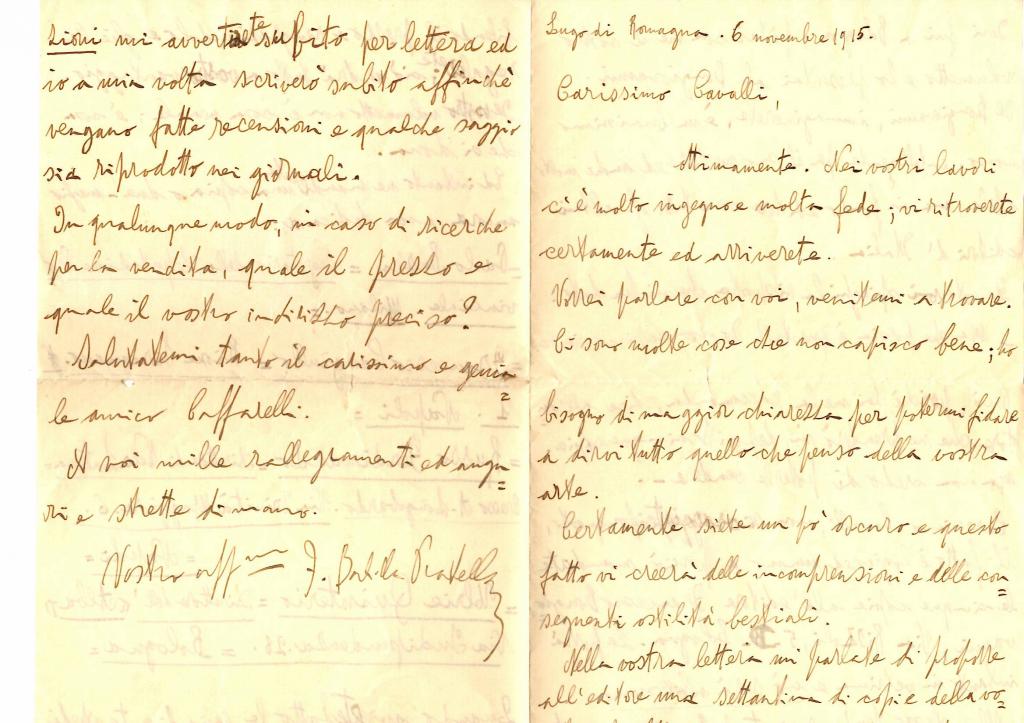 Lugo di Romagna. 6 novembre 1915.
Carissimo Cavalli,
ottimamente. Nei vostri lavori
c'è molto ingegno e molta fede; vi ritroverete
certamente ed arriverete.
Vorrei parlare con voi, venitemi a trovare.
Ci sono molte cose che non capisco bene; ho
bisogno di maggior chiarezza per potermi fidare
a dirvi tutto quello che penso della vostra
arte.
Certamente siete un pò oscuro e questo
fatto vi creerà delle incomprensioni e delle con=
seguenti ostilità bestiali.
Nella vostra lettera mi parlate di proporre
all'editore una settantina di copie della vo=
zioni mi avvertirete subito per lettera ed
io a mia volta scriverò subito affinchè
vengano fatte recensioni e qualche saggio
sia riprodotto nei giornali.
In qualunque modo, in caso di ricerche
per la vendita, quale il prezzo e
quale il vostro indirizzo preciso?
Salutatemi tanto il carissimo e genia=
le amico Caffarelli.
A voi mille rallegramenti ed augu=
ri e strette di mano.
Vostro aff.mo F. Balilla Pratella